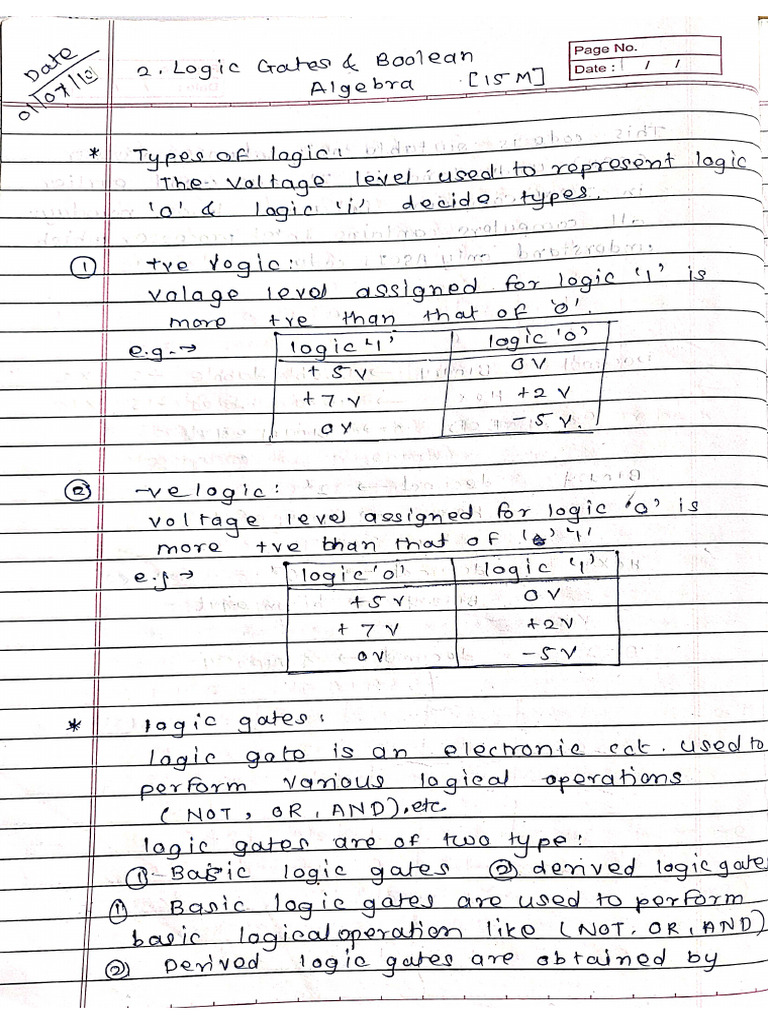 Date
01/07/10
Page No.
Date : / /
2. Logic Gates & Boolean
Algebra [15 M]
* Types of logic:
The voltage level used to represent logic
'0' & logic '1' decide types.
① +ve logic:
valage level assigned for logic '1' is
more +ve than that of '0'.
e.g.→ logic '1' logic '0'
+ 5 V 0 V
+ 7 V +2 V
0 V - 5 V.
② -ve logic:
voltage level assigned for logic '0' is
more +ve than that of '1'
e.g → logic '0' logic '1'
+5 V 0 V
+ 7 V +2 V
0 V -5 V
* logic gates:
logic gate is an electronic cct. used to
perform various logical operations
(NOT, OR, AND), etc.
logic gates are of two type:
① Basic logic gates ② derived logic gate
① Basic logic gates are used to perform
basic logical operation like (NOT, OR, AND)
② Derived logic gates are obtained by